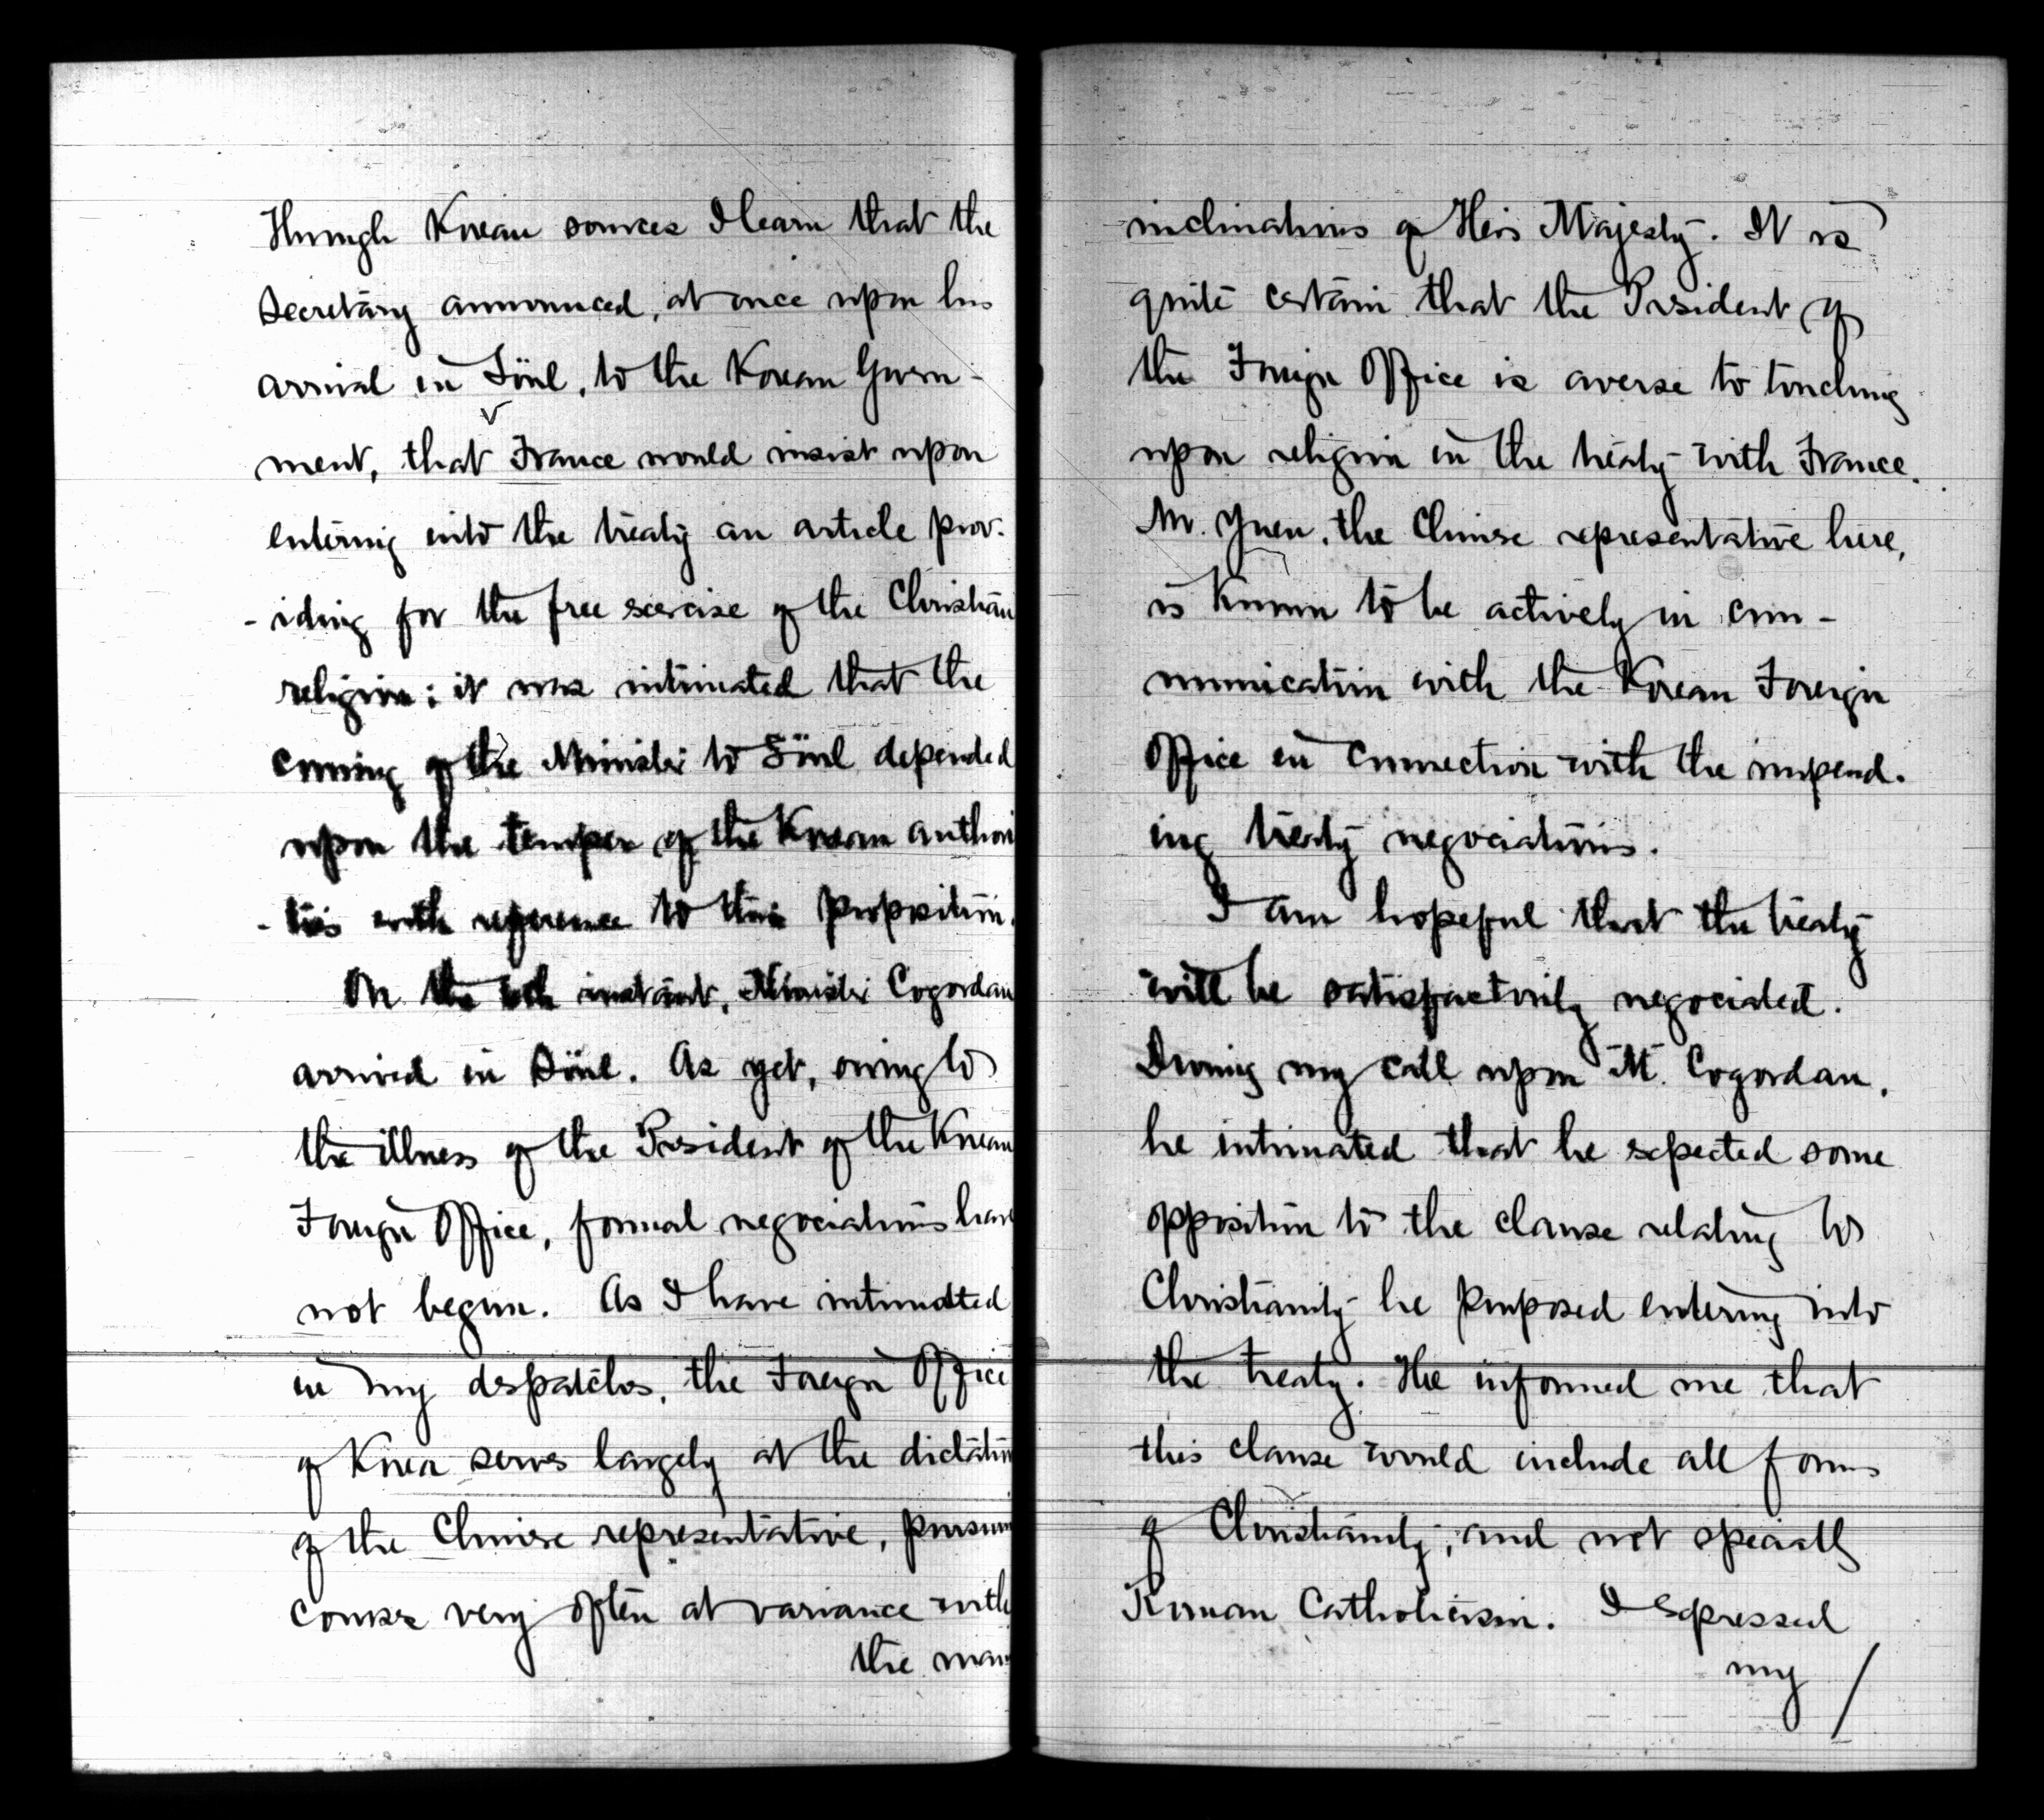 Through Korean sources I learn that the
Secretary announced, at once upon his
arrival in Söul, to the Korean Govern-
ment, that France would insist upon
entering into the treaty an article prov-
-iding for the free exercise of the Christian
religion; it was intimated that the
coming of the Minister to Söul depended
upon the temper of the Korean authori
-ties with reference to this proposition.
On the instant, Minister Cogordan
arrived in Söul. As yet, owing to
the illness of the President of the Korean
Foreign Office, formal negociations have
not begun. As I have intimated
in my despatches, the Foreign Office
of Korea serves largely at the dictation
of the Chinese representative,
course very often at variance with
the
inclinations of His Majesty. It is
quite certain that the President of
the Foreign Office is averse to touching
upon religion in the treaty with France.
Mr. Yuen, the Chinese representative here,
is known to be actively in com-
munication with the Korean Foreign
Office in connection with the impend-
ing treaty negociations.
I am hopeful that the treaty
will be satisfactorily negociated.
During my call upon M. Cogordan,
he intimated that he expected some
opposition to the clause relating to
Christianity he proposed entering into
the treaty. He informed me that
this clause would include all forms
of Christianity, and not specially
Roman Catholicism. I expressed
my